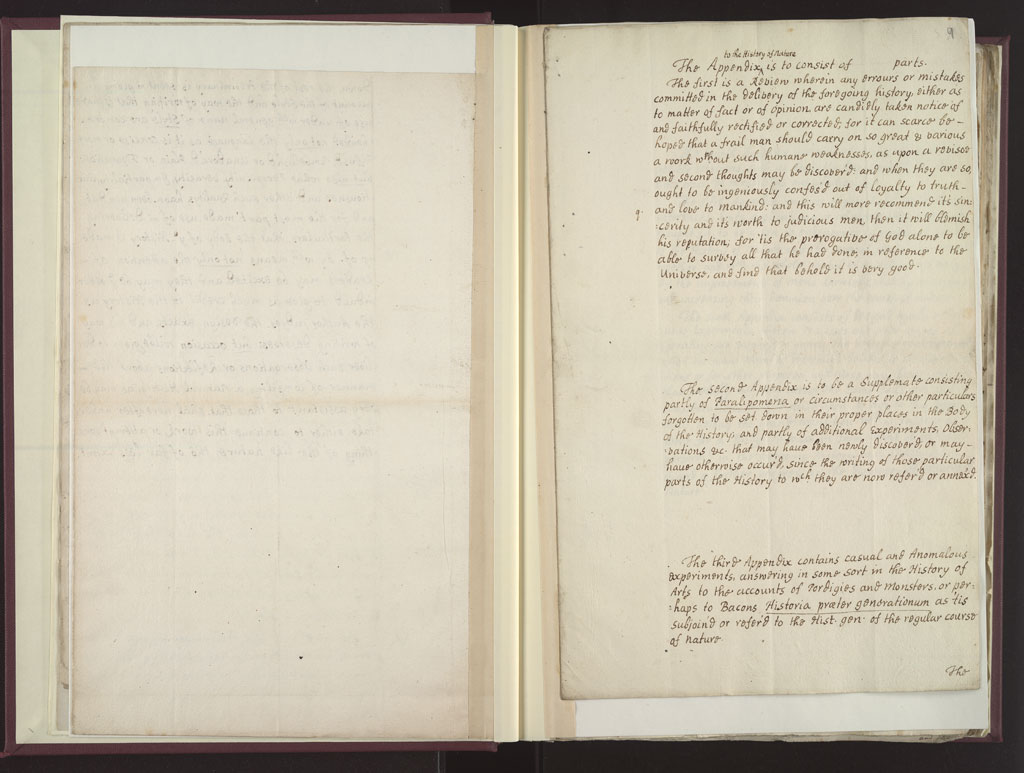 9
to the History of Nature
The Appendix ‸ is to consist of parts.
The first is a Review wherein any errours or mistakes
committed in the delivery of the foregoing history, either as
to matter of fact or of opinion are candidly taken notice of
and faithfully rectified or corrected; for it can scarce be-
hoped that a frail man should carry on so great & various
a work wthout such humane weaknesses, as upon a reviseé
and second thoughts may be discover'd: and when they are so,
ought to be ingeniously confess'd out of loyalty to truth-
and love to mankind: and this will more recommend its sin
q. :cerity and its worth to judicious men, then it will blemish
his reputation; for 'tis the prerogative of God alone to be
able to survey all that he had done, in reference to the
Universe, and find that behold it is very good.
The second Appendix is to be a Supplemate consisting
partly of Paralipomena or circumstances or other particulars
forgotten to be set down in their proper places in the Body
of the History; and partly of additional Experiments, Obser:
:vations &c. that may have been newly discover'd, or may-
have otherwise occur'd, since the writing of those particular
parts of the History to wch they are now refer'd or annex'd.
The third Appendix contains casual and Anomalous
Experiments, answering in some sort in the History of
Arts to the accounts of Pordigies and Monsters, or per:
:haps to Bacons Historia præter generationum as 'tis
subjoin'd or refer'd to the Hist. gen. of the regular course
of nature.
The